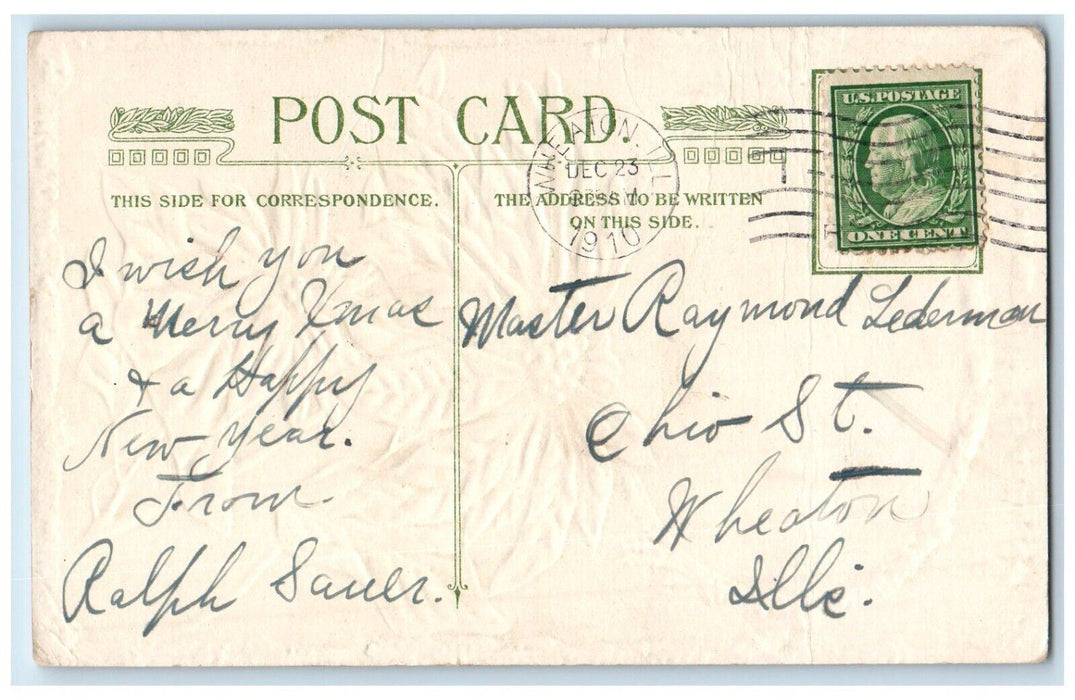 POST CARD.
THIS SIDE FOR CORRESPONDENCE.
THE ADDRESS TO BE WRITTEN
ON THIS SIDE.
WHEATON, ILL
DEC 23
1910
U.S. POSTAGE
ONE CENT
I wish you
a Merry Xmas
& a Happy
New Year.
From
Ralph Sauer.
Master Raymond Lederman
Ohio St.
Wheaton
Ills.